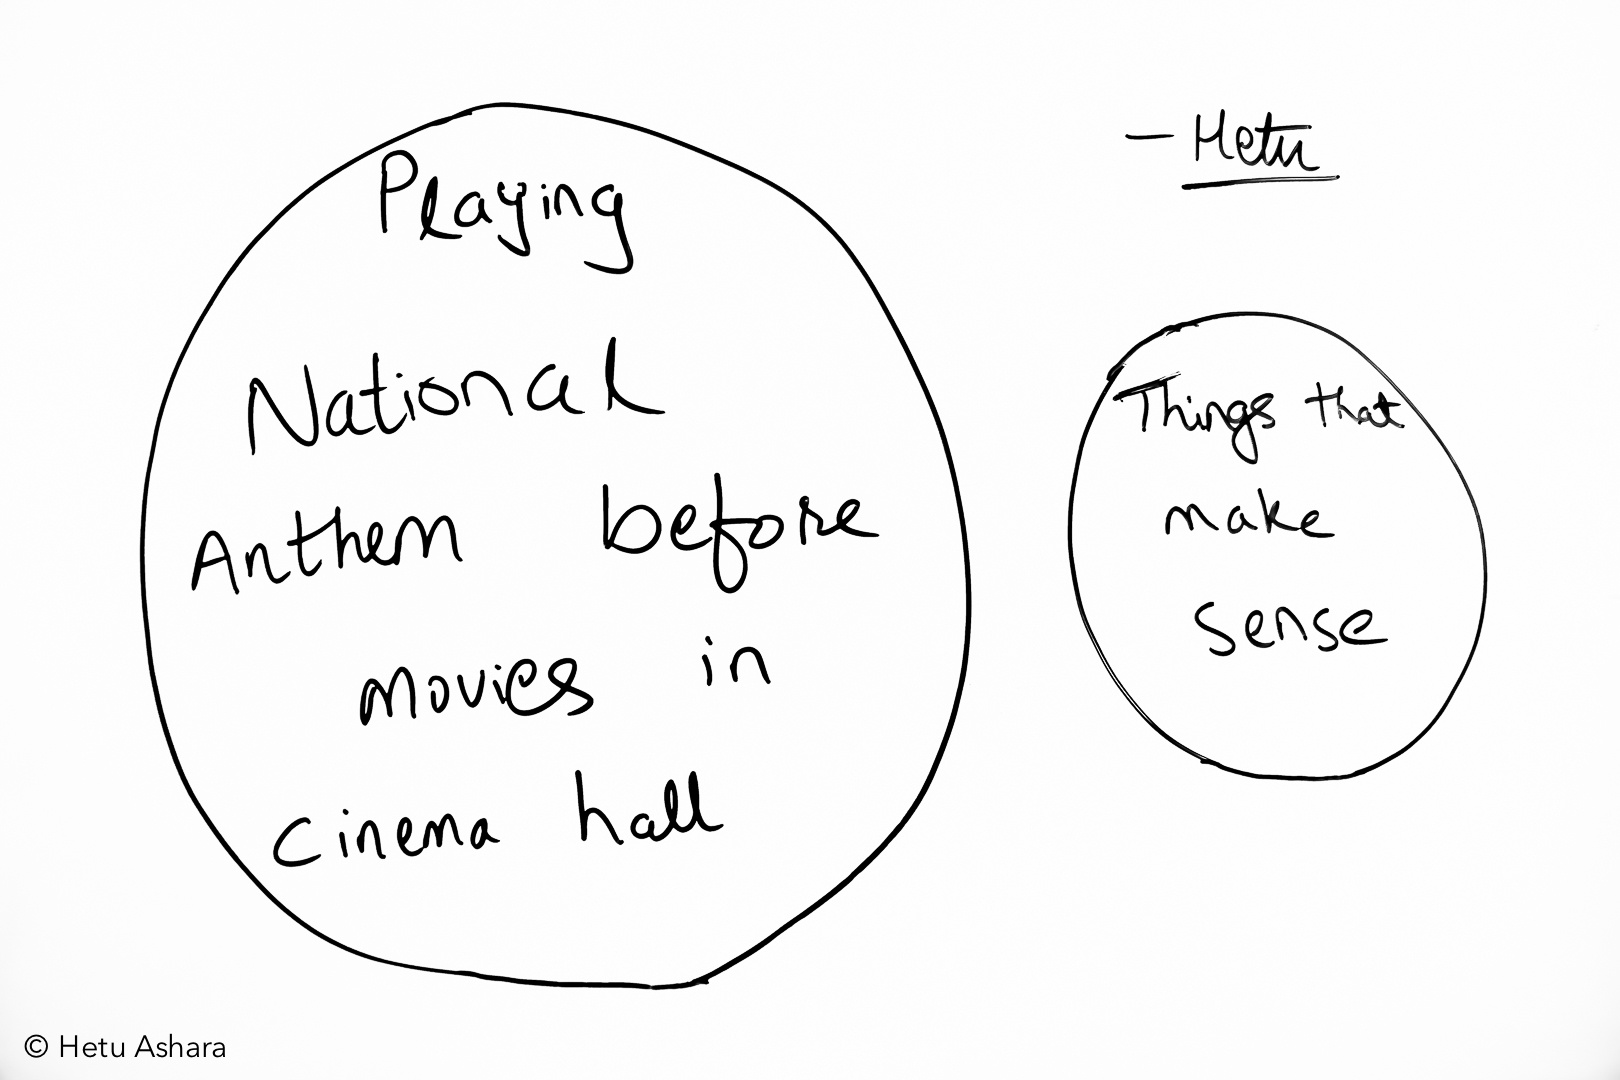 Playing
National
Anthem before
movies in
Cinema hall
- Hetu
Things that
make
sense
© Hetu Ashara